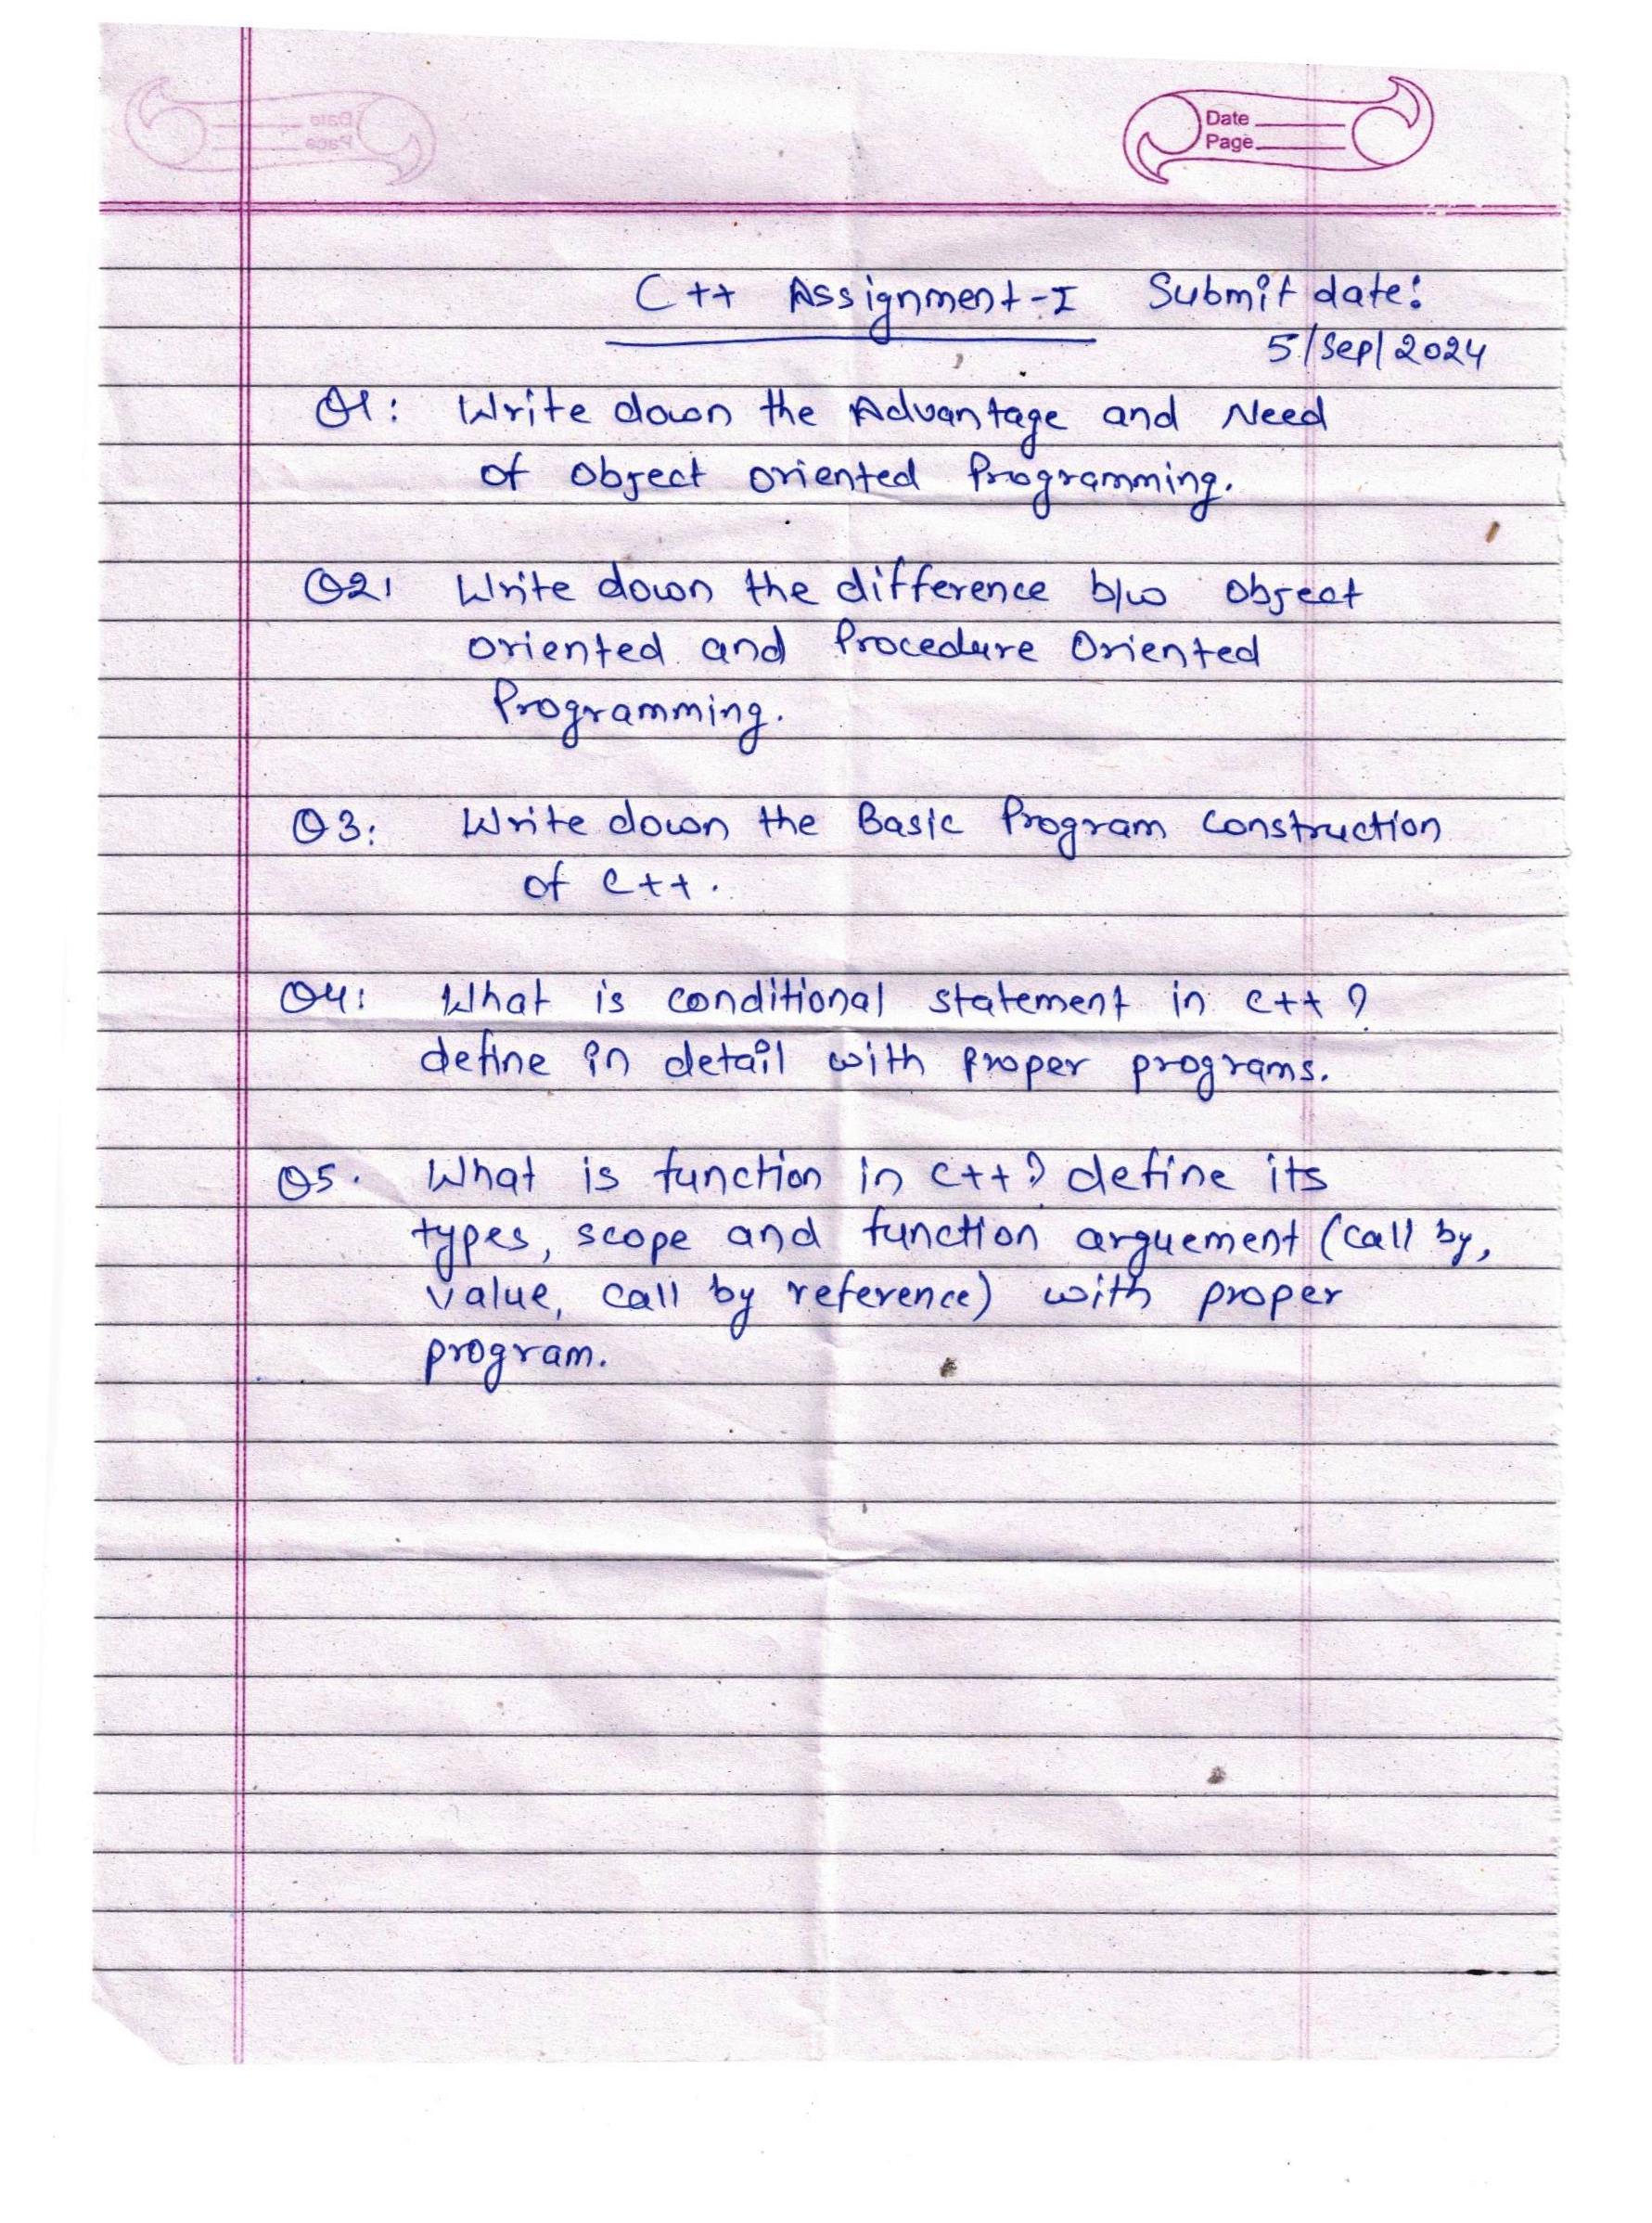 Date
Page
C++ Assignment-I Submit date:
5/Sep/2024
Q1: Write down the Advantage and Need
of Object oriented Programming.
Q2. Write down the difference b/w Object
oriented and Procedure Oriented
Programming.
Q3: Write down the Basic Program Construction
of C++.
Q4: What is conditional statement in C++?
define in detail with proper programs.
Q5. What is function in C++? define its
types, scope and function arguement (call by,
value, call by reference) with proper
program.